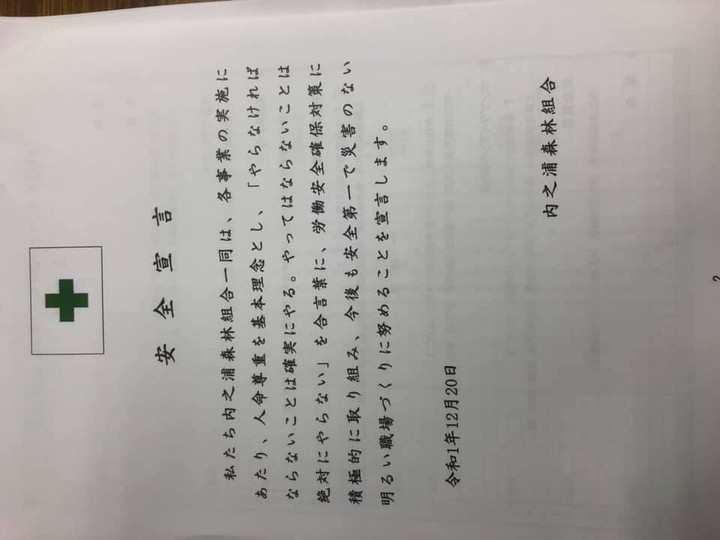 安全宣言
私たち内之浦森林組合一同は、各事業の実施に
あたり、人命尊重を基本理念とし、「やらなければ
ならないことは確実にやる。やってはならないことは
絶対にやらない」を合言葉に、労働安全確保対策に
積極的に取り組み、今後も安全第一で災害のない
明るい職場づくりに努めることを宣言します。
令和1年12月20日
内之浦森林組合
2